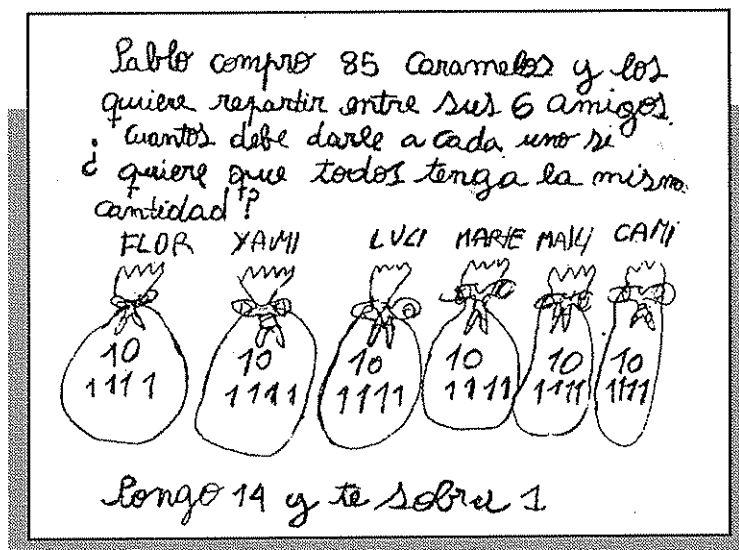 Pablo compro 85 caramelos y los
quiere repartir entre sus 6 amigos.
¿ cuantos debe darle a cada uno si
quiere que todos tenga la misma
cantidad?
FLOR YAMI LUCI MARIE MAILI CAMI
10 10 10 10 10 10
1111 1111 1111 1111 1111 1111
Pongo 14 y te sobra 1